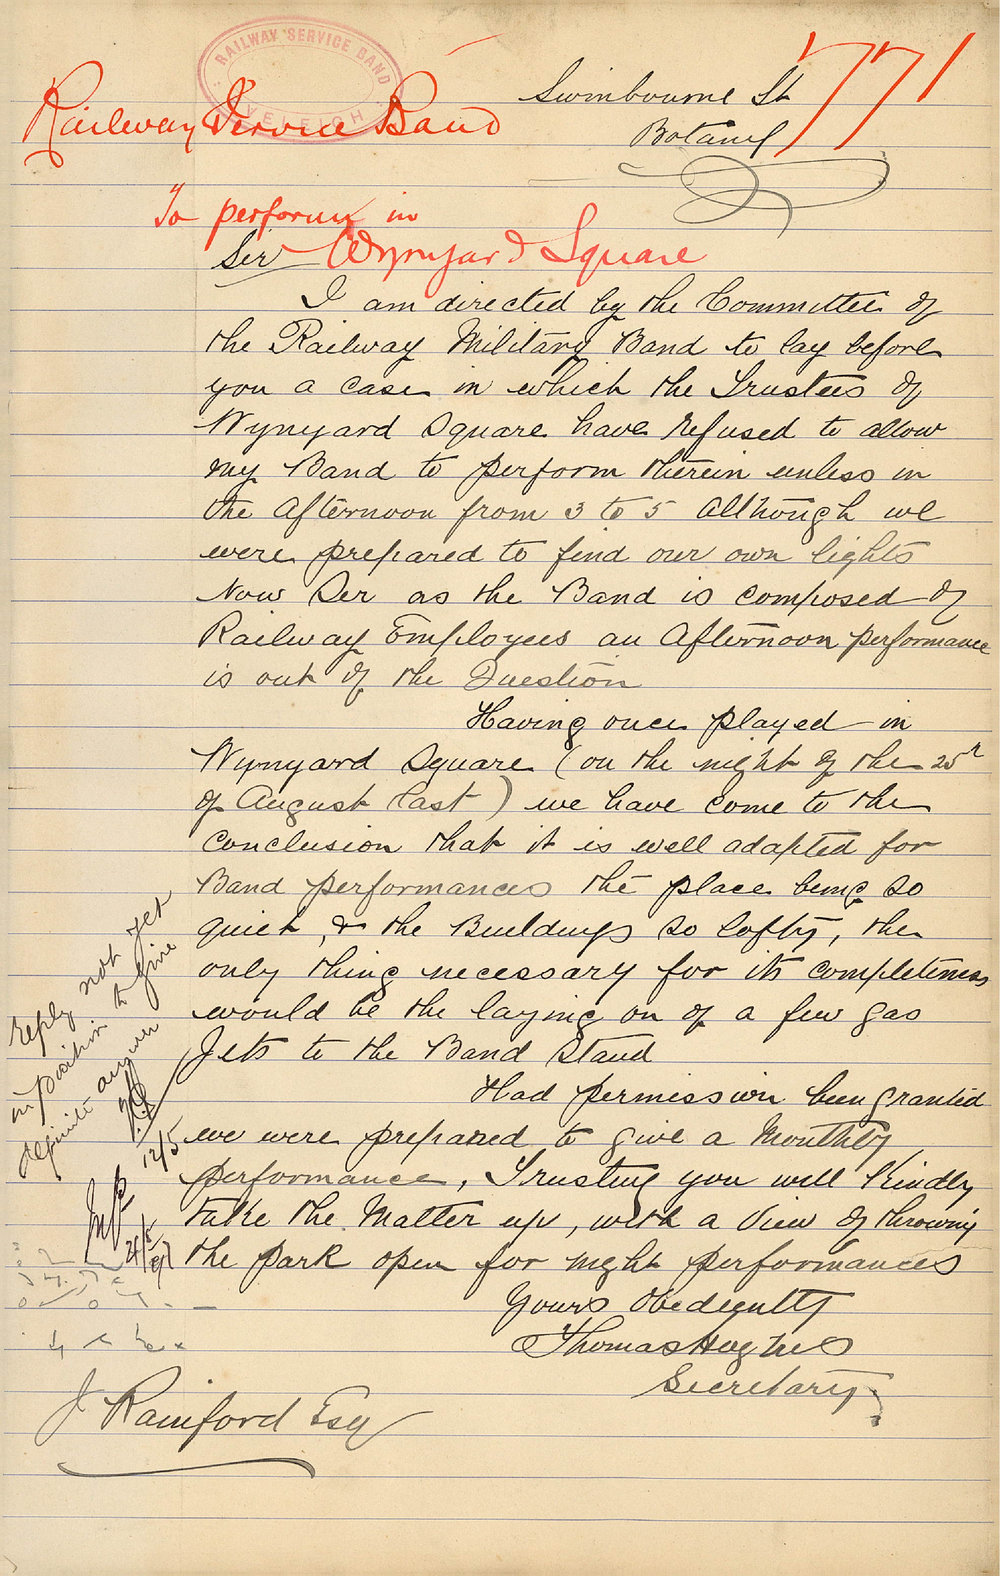 RAILWAY SERVICE BAND
EVELEIGH
771
Swinbourne St
Botany
Railway Service Band
To perform in
Wynyard Square
Sir
I am directed by the Committee of
the Railway Military Band to lay before
you a case in which the Trustees of
Wynyard Square have refused to allow
my Band to perform therein unless in
the Afternoon from 3 to 5 Although we
were prepared to find our own lights
Now Sir as the Band is composed of
Railway Employees an Afternoon performance
is out of the Question
Having once played in
Wynyard Square (on the night of the 25th
of August last) we have come to the
conclusion that it is well adapted for
Band performances the place being so
quiet, & the Buildings so lofty, the
only thing necessary for its completeness
would be the laying on of a few gas
Jets to the Band Stand
Had permission been granted
we were prepared to give a Monthly
performance, Trusting you will Kindly
take the Matter up, with a view of throwing
the park open for night performances
Yours Obediently
Thomas Hughes
Secretary
J Rainford Esq
Reply not yet
in position to give
definite answer
12/5